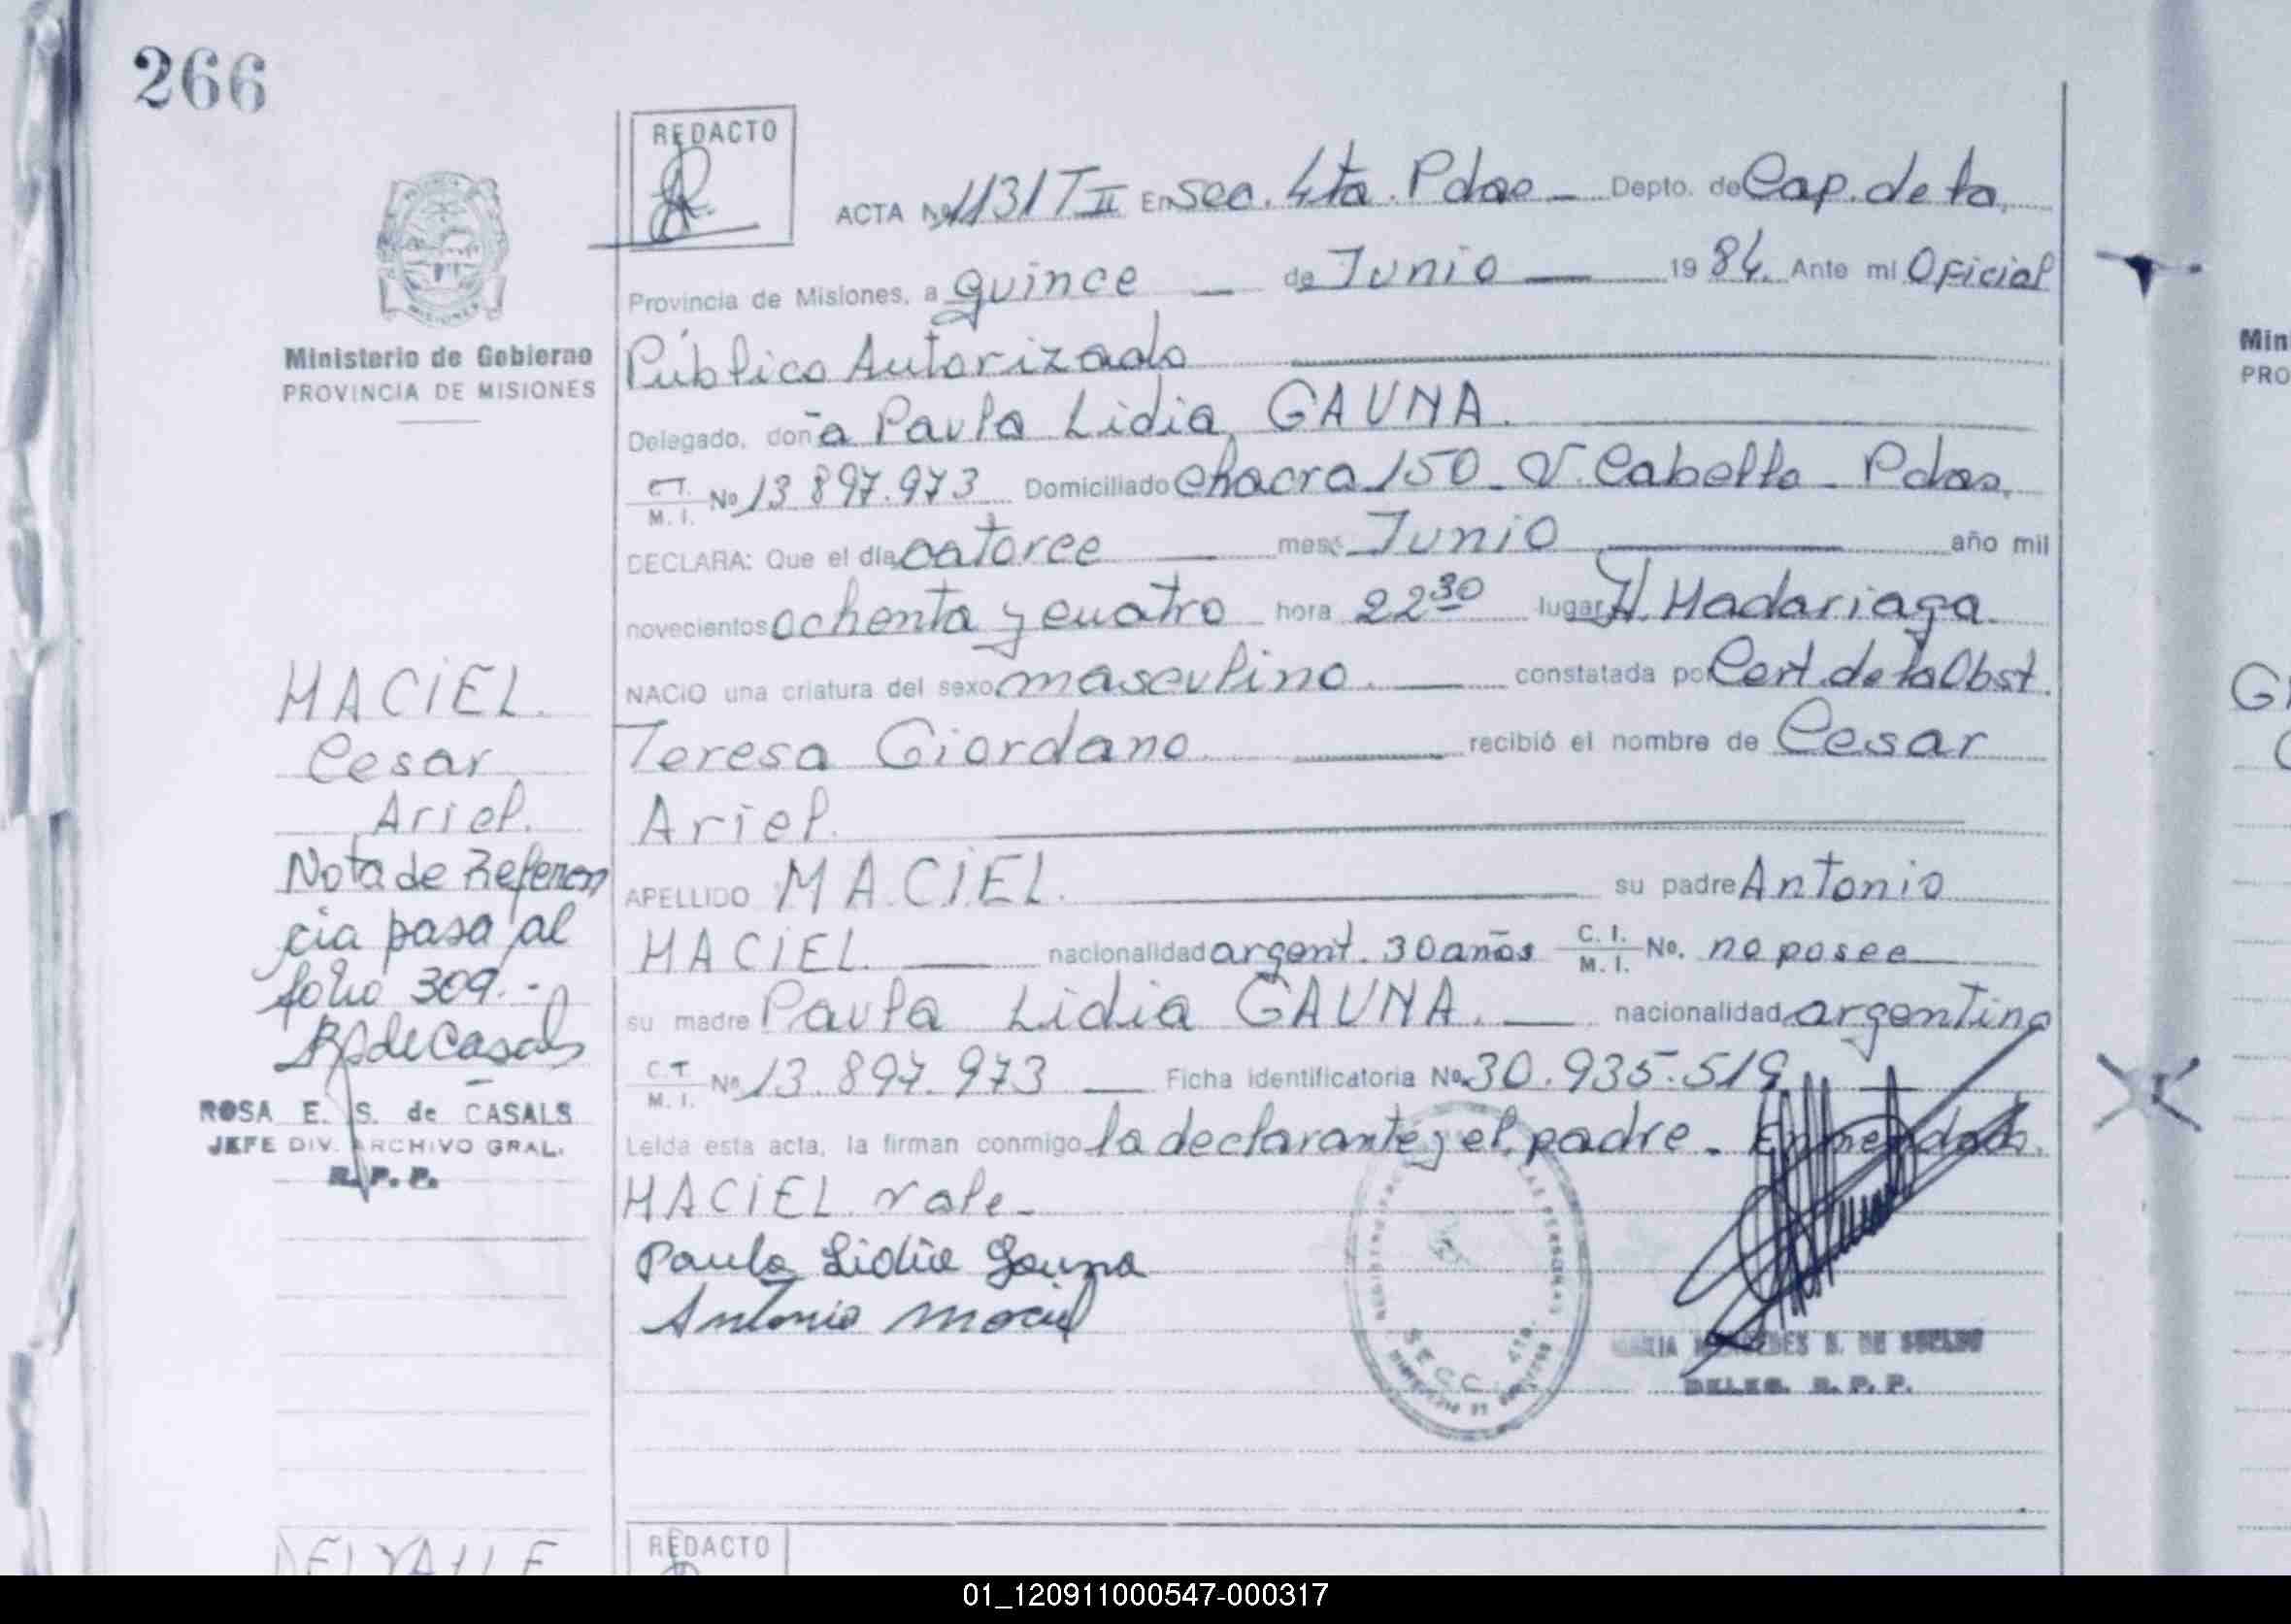 266
REDACTO
ACTA Nº 1131 T II En Sec. 4ta. Pdas - Depto. de Cap. de la
Provincia de Misiones, a quince - de Junio - 1984. Ante mi Oficial
Ministerio de Gobierno
PROVINCIA DE MISIONES
Público Autorizado
Delegado, doña Paula Lidia GAUNA.
C.I. M. I. No 13.897.973 Domiciliado Chacra 150 - V. Cabello - Pdas.
DECLARA: Que el día catorce - mes Junio - año mil
novecientos ochenta y cuatro hora 22 30 lugar H. Madariaga.
NACIO una criatura del sexo masculino. - constatada por Cert. de la Obst.
Teresa Giordano - recibió el nombre de Cesar
Ariel.
APELLIDO MACIEL. - su padre Antonio
MACIEL. - nacionalidad argent. 30 años C. I. M. I. No. no posee
su madre Paula Lidia GAUNA. - nacionalidad argentina
C.I. M. I. No 13.897.973 - Ficha identificatoria No. 30.935.519
Leída esta acta, la firman conmigo la declarante y el padre - Enmendado.
MACIEL. vale -
Paula Lidia Gauna
Antonio Maciel
MACIEL.
Cesar
Ariel.
Nota de Referen
cia pasa al
folio 309.-
RSdeCasals
ROSA E. S. de CASALS
JEFE DIV. ARCHIVO GRAL.
R. P. P.
SECC. 4ta.
MARIA MERCEDES S. DE
DELEG. R. P. P.
DELVALLE
REDACTO
Min
PRO
01_120911000547-000317